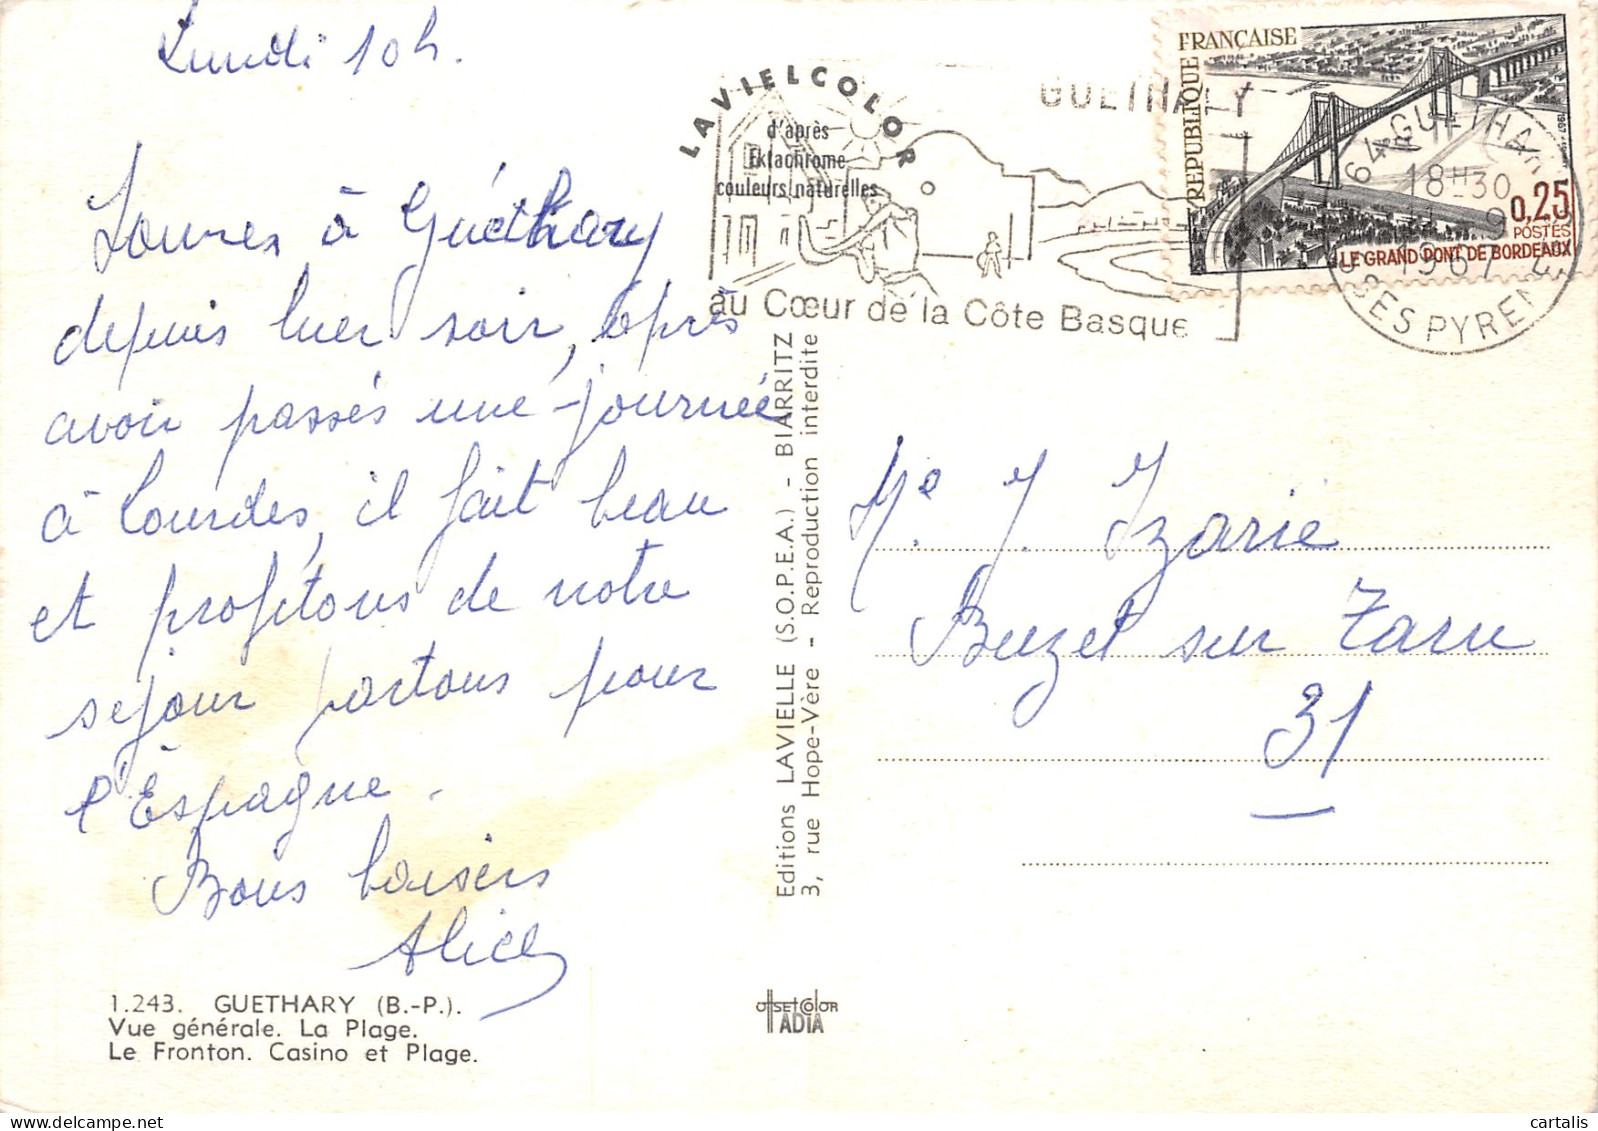 Lundi 10h.
Sommes à Guéthary
depuis hier soir, après
avoir passés une journée
à Lourdes, il fait beau
et profitons de notre
séjour partons pour
l'Espagne.
Bons baisers
Alice
1.243. GUETHARY (B.-P.).
Vue générale. La Plage.
Le Fronton. Casino et Plage.
LAVIELCOLOR
d'après
Ektachrome
couleurs naturelles
GUETHARY
au Cœur de la Côte Basque
Editions LAVIELLE (S.O.P.E.A.) - BIARRITZ
3, rue Hope-Vère - Reproduction interdite
OFFSET COLOR
IADIA
REPUBLIQUE FRANÇAISE
1967
0,25
POSTES
LE GRAND PONT DE BORDEAUX
64 GUETHARY
18H30
1967
BSES PYRENEES
Me J. Izarie
Buzet sur Tarn
31
cartalis
delcampe.net